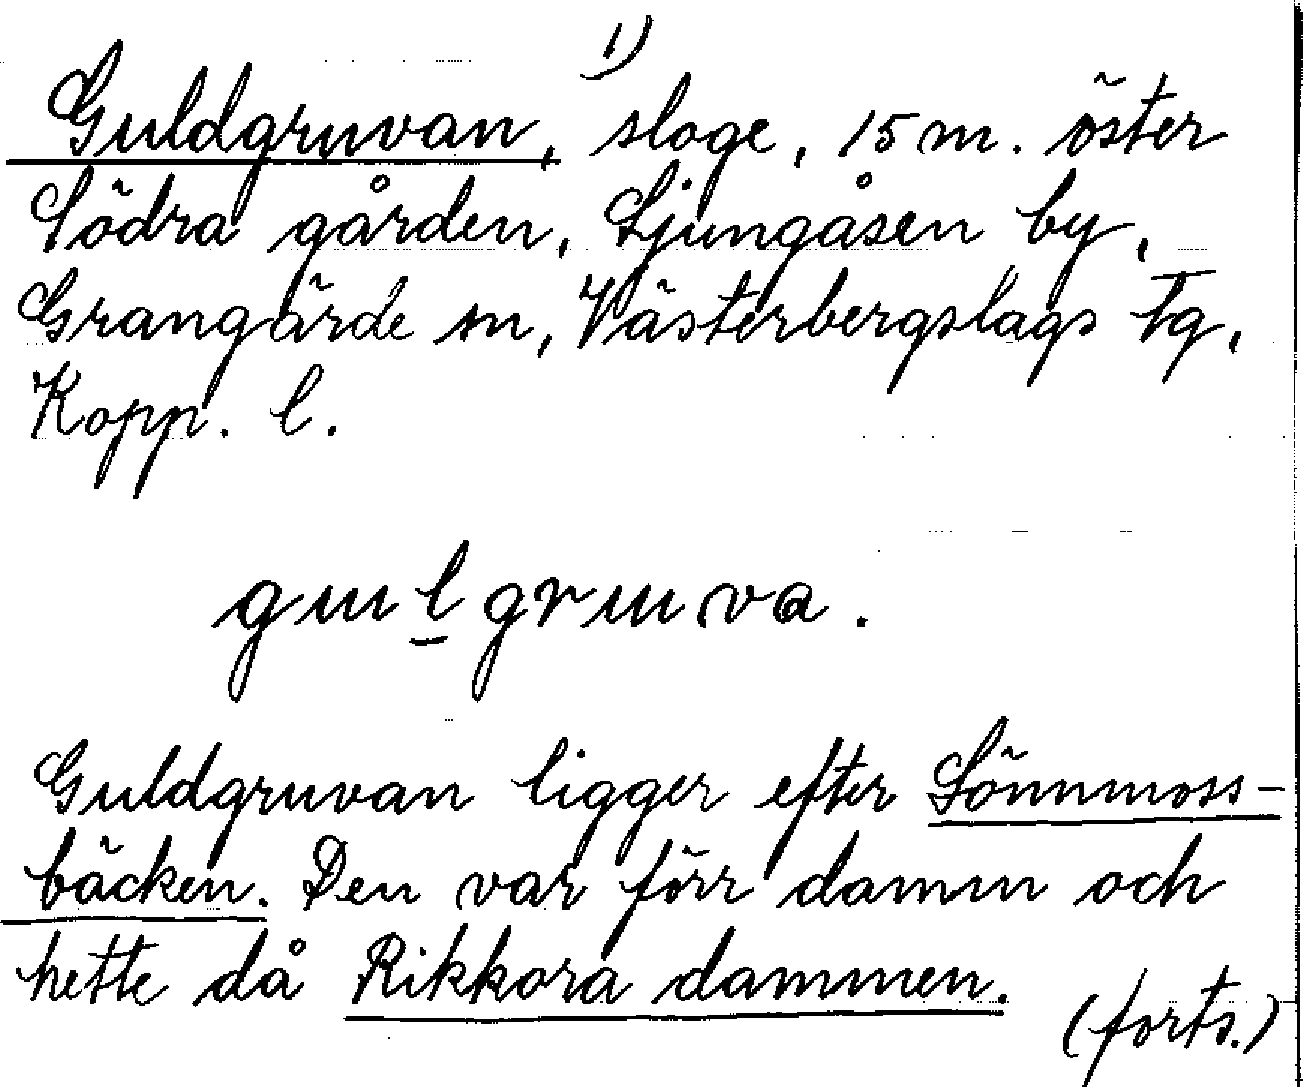 1)
Guldgruvan, sloge, 15 m. öster
Södra gården, Ljungåsen by,
Grangärde sn, Västerbergslags tg,
Kopp. l.
gulgruva.
Guldgruvan ligger efter Sönnmoss-
bäcken. Den var förr damm och
hette då Rikkora dammen.
(forts.)